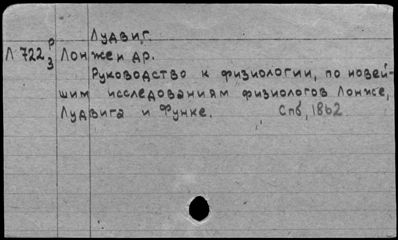 Лудвиг.
Л 722 р/3 Лонжен др.
Руководство к физиологии, по новей-
шим исследованиям физиологов Лонже,
Лудвига и Функе. Спб, 1862